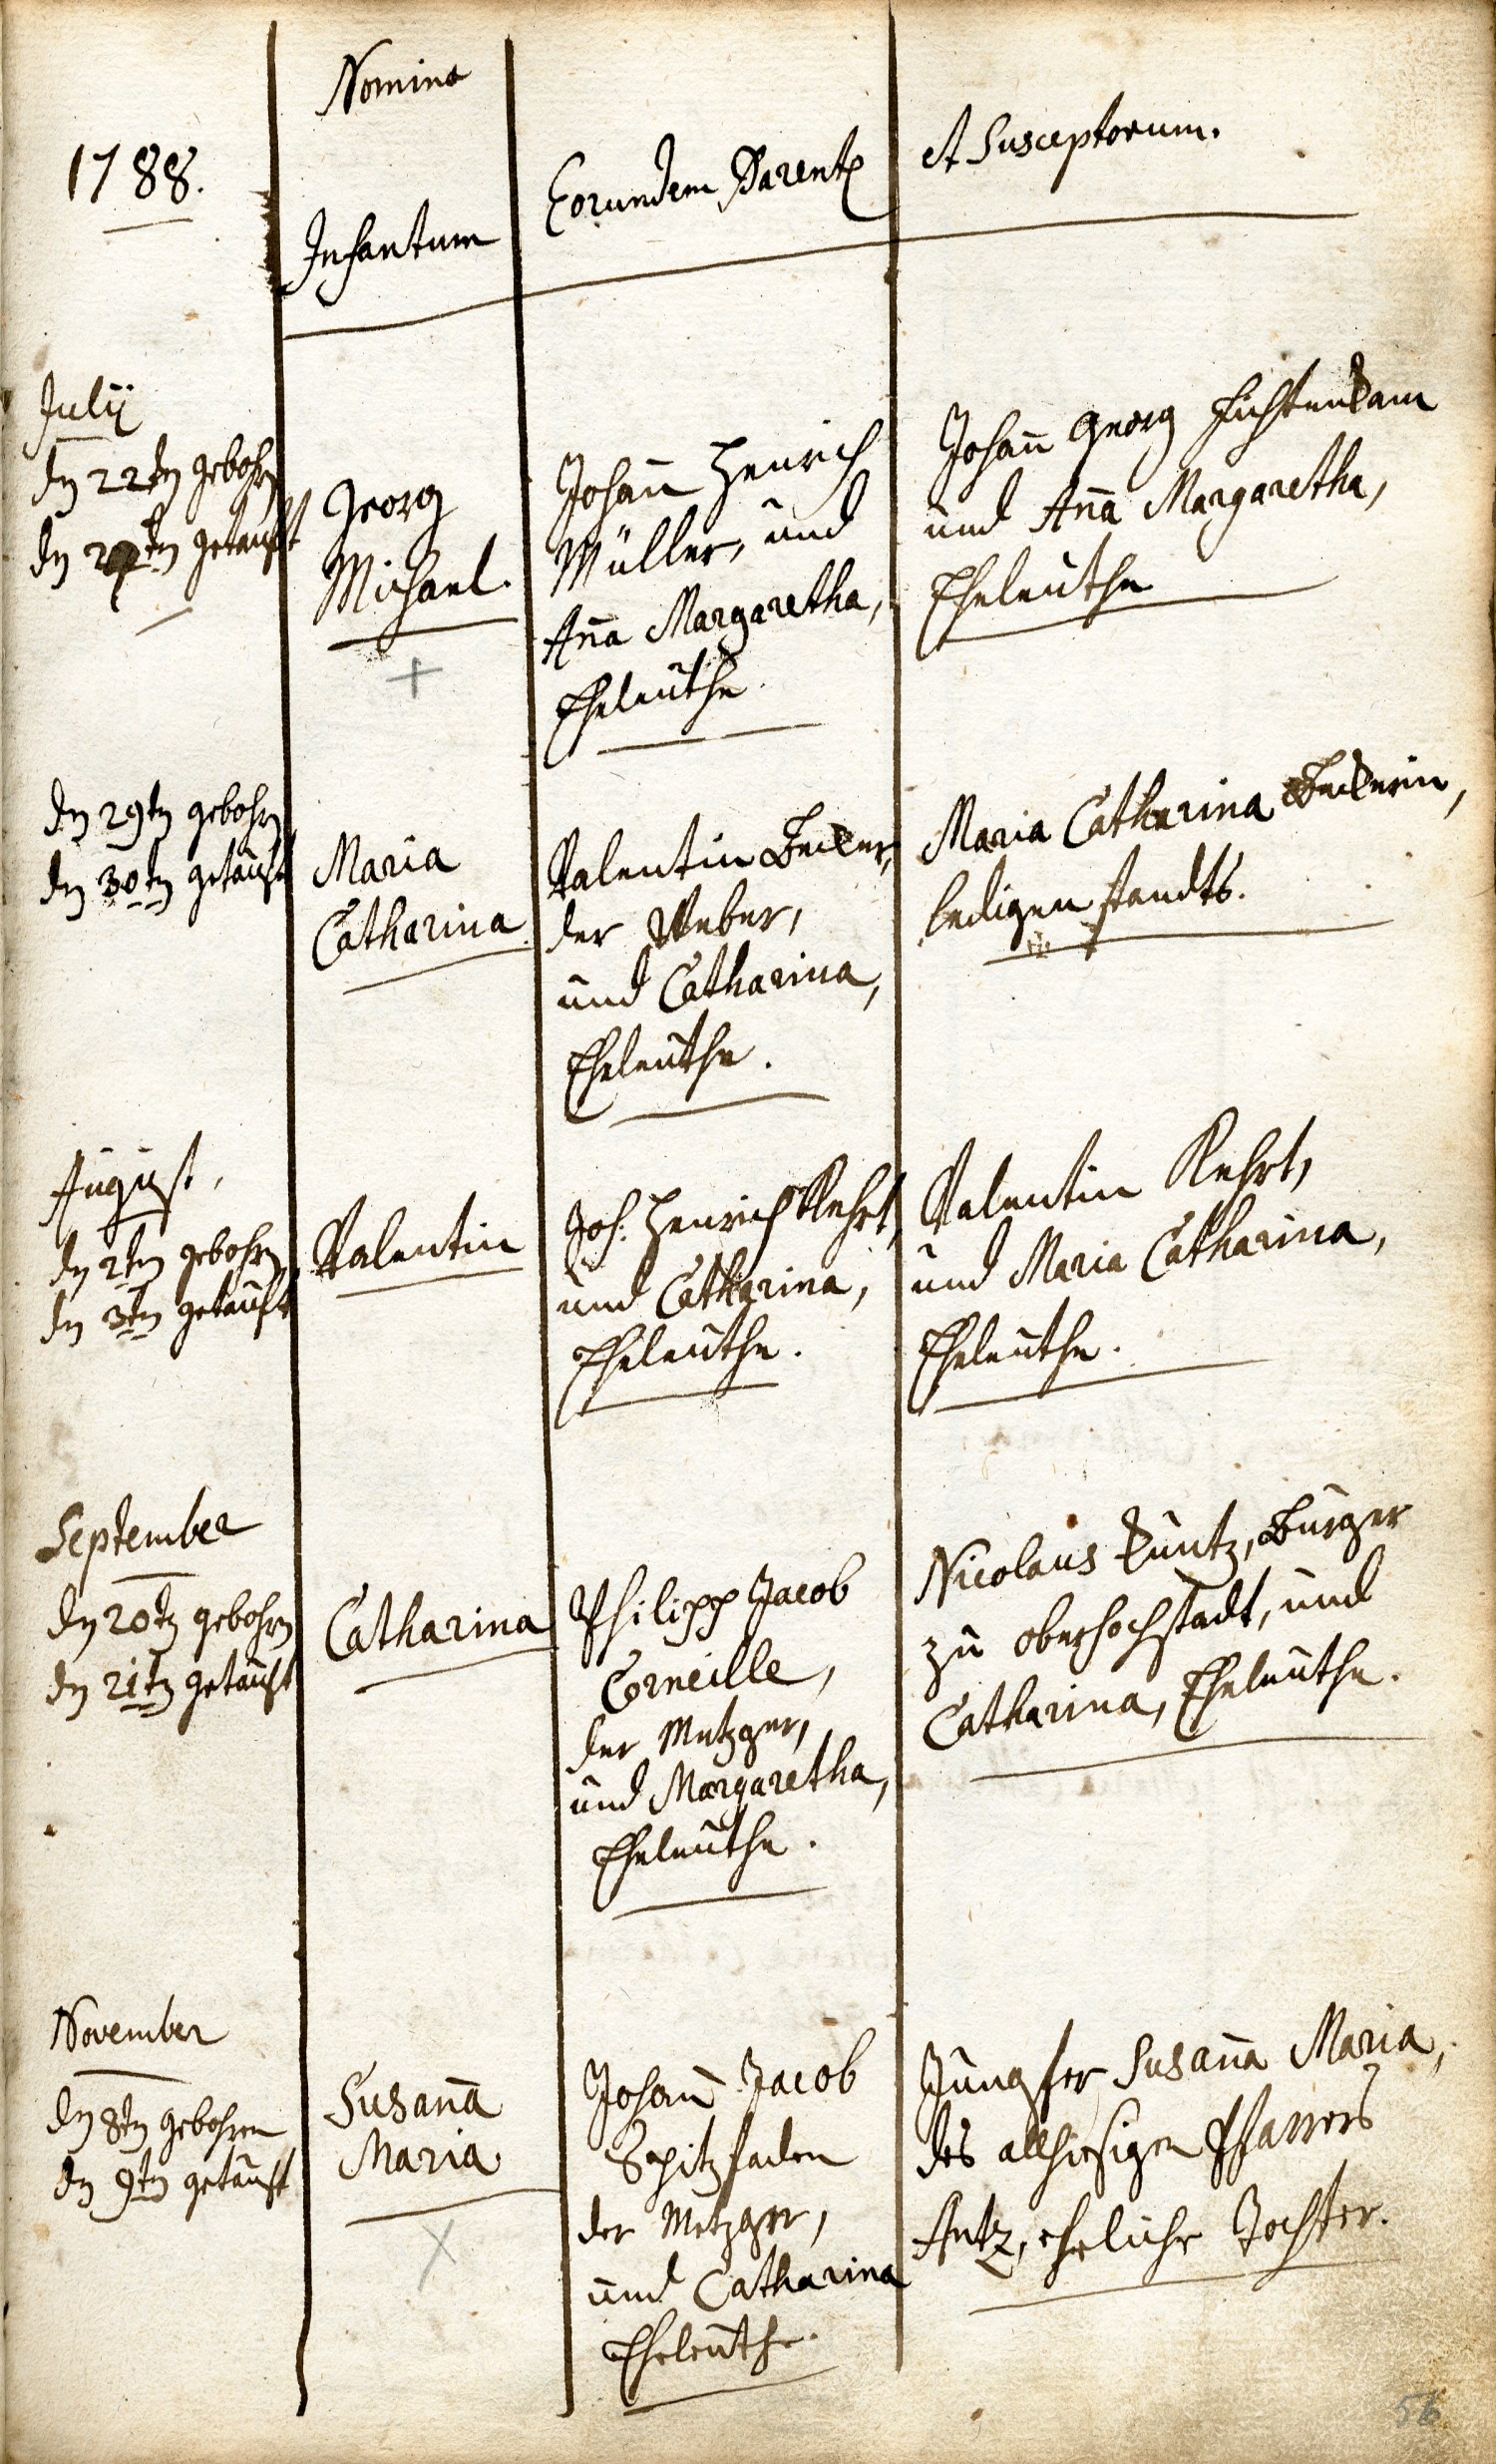 1788.
Nomina
Infantum
Eorundem Parent
et Susceptorum.
July
den 22ten gebohrn
den getauft
Georg
Michael.
Johann Henrich
Müller, und
Anna Margaretha,
Eheleuthe
Johann Georg
und Anna Margaretha,
Eheleuthe
den 29ten gebohrn
den 30ten getauft
Maria
Catharina
Valentin Becker,
der Weber,
und Catharina,
Eheleuthe.
Maria Catharina Beckerin,
ledigen standts.
August,
den 2ten gebohrn
den 3ten getauft
Valentin
Joh: Henrich Kehrt,
und Catharina,
Eheleuthe.
Valentin Kehrt,
und Maria Catharina,
Eheleuthe.
September
den 20ten gebohrn
den 21ten getauft
Catharina
Philipp Jacob
Corneille,
der Metzger,
und Margaretha,
Eheleuthe.
Nicolaus Kuntz, Burger
zu oberhochstadt, und
Catharina, Eheleuthe.
November
den 8ten gebohren
den 9ten getauft
Susanna
Maria
Johann Jacob
Spitzfaden
der Metzger,
und Catharina
Eheleuthe.
Jungfer Susanna Maria,
des allhiesigen Pfarrers
Antz, eheliche Tochter.
56